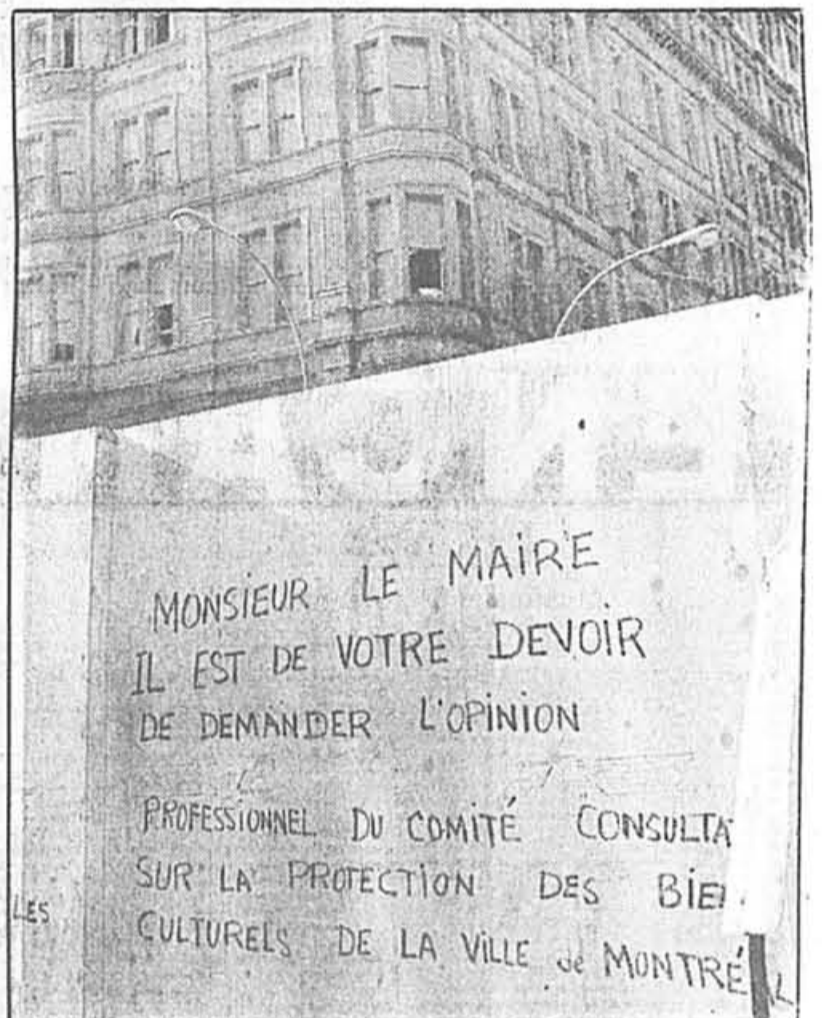 MONSIEUR LE MAIRE
IL EST DE VOTRE DEVOIR
DE DEMANDER L'OPINION
PROFESSIONNEL DU COMITÉ CONSULTA
SUR LA PROTECTION DES BIE
CULTURELS DE LA VILLE de MONTRÉAL
LES